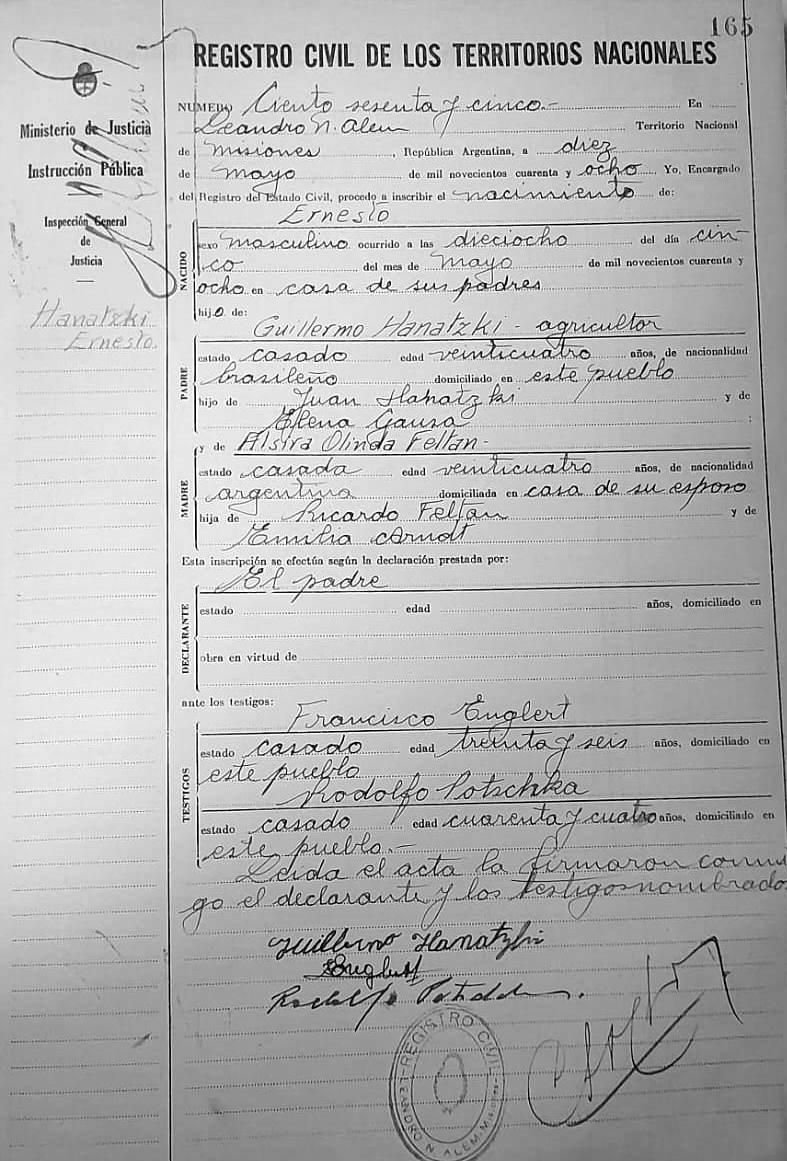 165
REGISTRO CIVIL DE LOS TERRITORIOS NACIONALES
Ministerio de Justicia
e
Instrucción Pública
Inspección General
de
Justicia
Hanatzki
Ernesto.
NUMERO Ciento sesenta y cinco.- En
Leandro N. Alem Territorio Nacional
de Misiones, República Argentina, a diez
de Mayo de mil novecientos cuarenta y ocho. Yo, Encargado
del Registro del Estado Civil, procedo a inscribir el nacimiento de:
Ernesto
NACIDO
sexo masculino ocurrido a las dieciocho del día cin-
co del mes de Mayo de mil novecientos cuarenta y
ocho en casa de sus padres
hijo de:
Guillermo Hanatzki - agricultor
PADRE
estado casado edad veinticuatro años, de nacionalidad
brasileño domiciliado en este pueblo
hijo de Juan Hanatzki y de
Elena Gausa ;
y de Alsira Olinda Feltan-
MADRE
estado casada edad veinticuatro años, de nacionalidad
argentina domiciliada en casa de su esposo
hija de Ricardo Feltan y de
Emilia Arndt
Esta inscripción se efectúa según la declaración prestada por:
El padre
DECLARANTE
estado edad años, domiciliado en
obra en virtud de
ante los testigos:
Francisco Englert
TESTIGOS
estado casado edad treinta y seis años, domiciliado en
este pueblo
Rodolfo Potschka
estado casado edad cuarenta y cuatro años, domiciliado en
este pueblo.-
Leida el acta la firmaron conmi
go el declarante y los testigos nombrados
Guillermo Hanatzki
Englert
Rodolfo
REGISTRO CIVIL
LEANDRO N. ALEM